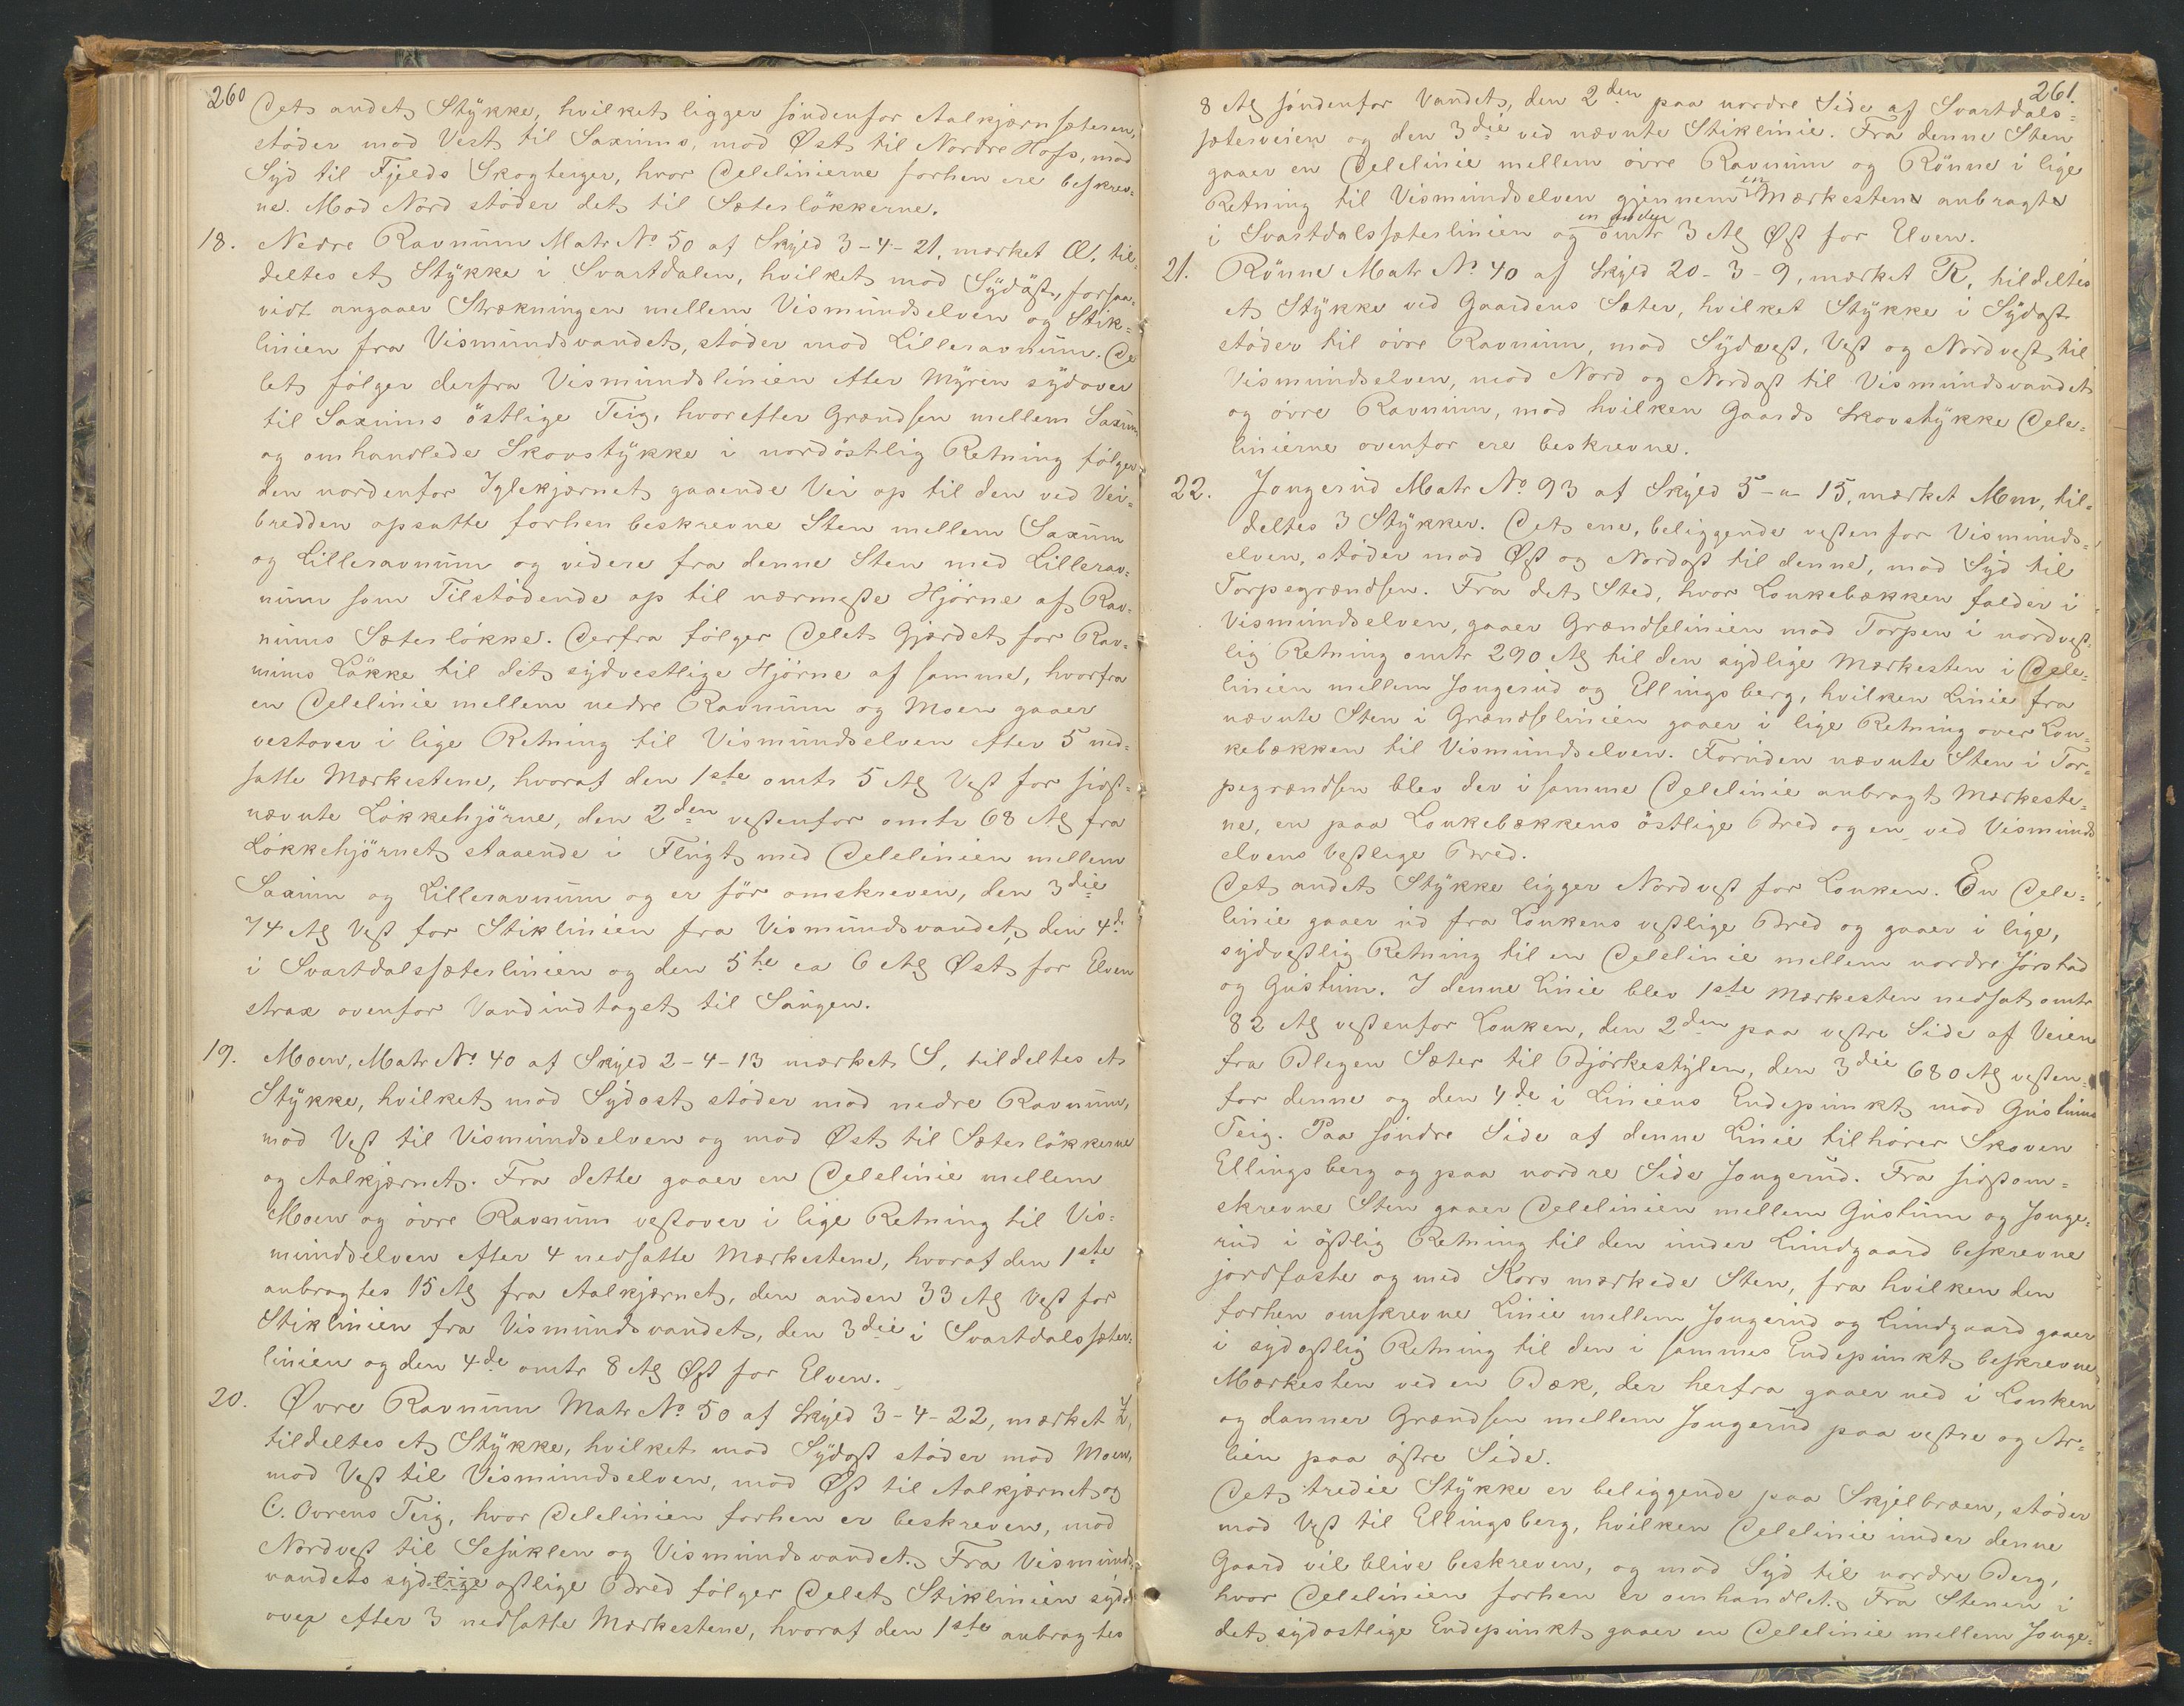 260
Det andet Stykke, hvilket ligger söndenfor Aalkjærnsæteren,
stöder mod Vest til Saxums, mod Øst til Nordre Hofs, mod
Syd til Fjelds Skogteiger, hvor Delelinierne forhen ere beskrev-
ne. Mod Nord stöder det til Sæterlökkerne.
18. Nedre Ravnum Matr No 50 af Skyld 3-4-21, mærket Æ, til-
deltes et Stykke i Svartdalen, hvilket mod Sydöst, forsaa-
vidt angaaer Strækningen mellem Vismundselven og Stik-
linien fra Vismundsvandet, stöder mod Lilleravnum. De
let fölger derfra Vismundslinien efter Myren sydover
til Saxums östlige Teig, hvorefter Grændsen mellem Saxum
og omhandlede Skovstykke i nordöstlig Retning fölger
den nordenfor Iglekjærnet gaaende Vei op til den ved Vei-
bredden opsatte forhen beskrevne Sten mellem Saxum
og Lilleravnum og videre fra denne Sten med Lillerav-
num som Tilstödende op til nærmeste Hjörne af Rav-
nums Sæterlökke. Derfra fölger Delet Gjærdet for Rav-
nums Lökke til det sydvestlige Hjörne af samme, hvorfra
en Delelinie mellem nedre Ravnum og Moen gaaer
vestover i lige Retning til Vismundselven efter 5 ned-
satte Mærkestene, hvoraf den 1ste omtr 5 Al Vest for sidst-
nævnte Lökkehjörne, den 2den vestenfor omtr 68 Al fra
Lökkehjörnet staaende i Flugt med Delelinien mellem
Saxum og Lilleravnum og er för omskreven, den 3die
74 Al Vest for Stiklinien fra Vismundsvandet, den 4de
i Svartdalssæterlinien og den 5te ca 6 Al Øst for Elven
strax ovenfor Vandindtaget til Saugen.
19. Moen, Matr No 40 af Skyld 2-4-13 mærket S, tildeltes et
Stykke, hvilket mod Sydost stöder mod nedre Ravnum,
mod Vest til Vismundselven og mod Øst til Sæterlökkerne
og Aalkjærnet. Fra dette gaaer en Delelinie mellem
Moen og övre Ravnum vestover i lige Retning til Vis-
mundselven efter 4 nedsatte Mærkestene, hvoraf den 1ste
anbragtes 15 Al fra Aalkjærnet, den anden 33 Al Vest for
Stiklinien fra Vismundsvandet, den 3die i Svartdalssæter-
linien og den 4de omtr 8 Al Øst for Elven.
20. Övre Ravnum Matr No 50 af Skyld 3-4-22, mærket
tildeltes et Stykke, hvilket mod Sydost stöder mod Moen,
mod Vest til Vismundselven, mod Øst til Aalkjærnet og
C. Ovrens Teig, hvor Delelinien forhen er beskreven, mod
Nordvest til Sesuklen og Vismundsvandet. Fra Vismunds
vandets sydlige ostlige Bred fölger Delet Stiklinien syd-
over efter 3 nedsatte Mærkestene, hvoraf den 1ste anbragtes
261.
8 Al söndenfor Vandet, den 2den paa nordre Side af Svartdals-
sæterveien og den 3die ved nævnte Stiklinie. Fra denne Sten
gaaer en Delelinie mellem övre Ravnum og Rönne i lige
Retning til Vismundselven gjennem en Mærkesten anbragt
i Svartdalssæterlinien og en anden omtr 3 Al Øst for Elven.
21. Rönne Matr No 40 af Skyld 20-3-9, mærket R, tildeltes
et Stykke ved Gaardens Sæter, hvilket Stykke i Sydost
stöder til övre Ravnum, mod Sydvest, Vest og Nordvest til
Vismundselven, mod Nord og Nordost til Vismundsvandet
og övre Ravnum, mod hvilken Gaards Skovstykke Dele-
linierne ovenfor ere beskrevne.
22. Jongerud Matr No 93 af Skyld 5-"-15, mærket Mm, til-
deltes 3 Stykker. Det ene, beliggende vestenfor Vismunds-
elven, stöder mod Øst og Nordost til denne, mod Syd til
Torpegrændsen. Fra det Sted, hvor Loukebækken falder i
Vismundselven, gaaer Grændselinien mod Torpen i nordvest-
lig Retning omtr 290 Al til den sydlige Mærkesten i Dele-
linien mellem Jongerud og Ellingsberg, hvilken Linie fra
nævnte Sten i Grændselinien gaaer i lige Retning over Lou-
kebækken til Vismundselven. Foruden nævnte Sten i Tor-
pegrændsen blev der i samme Delelinie anbragt Mærkeste-
ne, en paa Loukebækkens östlige Bred og en ved Vismunds
elvens vestlige Bred.
Det andet Stykke ligger Nordvest for Louken. En Dele-
linie gaaer ud fra Loukens vestlige Bred og gaaer i lige,
sydvestlig Retning til en Delelinie mellem nordre Jörstad
og Gustum. I denne Linie blev 1ste Mærkesten nedsat omtr
82 Al vestenfor Louken, den 2den paa vestre Side af Veien
fra Blegen Sæter til Björkestylen, den 3die 680 Al vesten-
for denne og den 4de i Liniens Endepunkt mod Gustums
Teig. Paa söndre Side af denne Linie tilhörer Skoven
Ellingsberg og paa nordre Side Jongerud. Fra sidstom-
skrevne Sten gaaer Delelinien mellem Gustum og Jonge-
rud i östlig Retning til den under Lundgaard beskrevne
jordfaste og med Kors mærkede Sten, fra hvilken den
forhen omskrevne Linie mellem Jongerud og Lundgaard gaaer
i sydostlig Retning til den i sammes Endepunkt beskrevne
Mærkesten ved en Bæk, der herfra gaaer ned i Louken
og danner Grændsen mellem Jongerud paa vestre og Ar-
lien paa östre Side.
Det tredie Stykke er beliggende paa Skjelbræen, stöder
mod Vest til Ellingsberg, hvilken Delelinie under denne
Gaard vil blive beskreven, og mod Syd til nordre Berg,
hvor Delelinien forhen er omhandlet. Fra Stenen i
det sydostlige Endepunkt gaaer en Delelinie mellem Jonge-